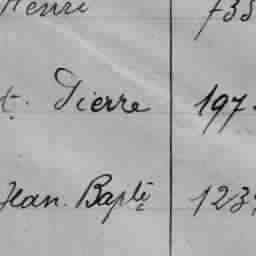 Henri 735
t. Pierre 197.
Jean. Bapte 123